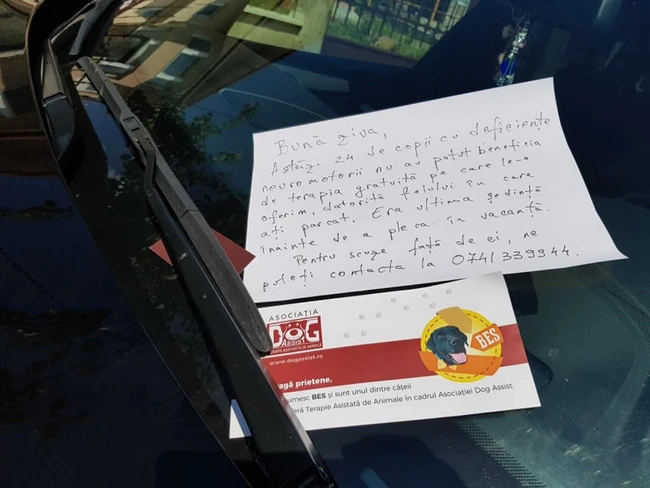 Bună ziua,
Astăzi 24 de copii cu deficiențe
neuromotorii nu au putut beneficia
de terapia gratuită pe care le-o
oferim, datorită felului în care
ați parcat. Era ultima ședință
înainte de a pleca în vacanță.
Pentru scuze față de ei, ne
puteți contacta la 0741 339944.
ASOCIAȚIA
DOG
Assist
TERAPIE ASISTATĂ DE ANIMALE
www.dogassist.ro
BES
agă prietene,
umesc BES și sunt unul dintre cățeii
eră Terapie Asistată de Animale în cadrul Asociației Dog Assist.